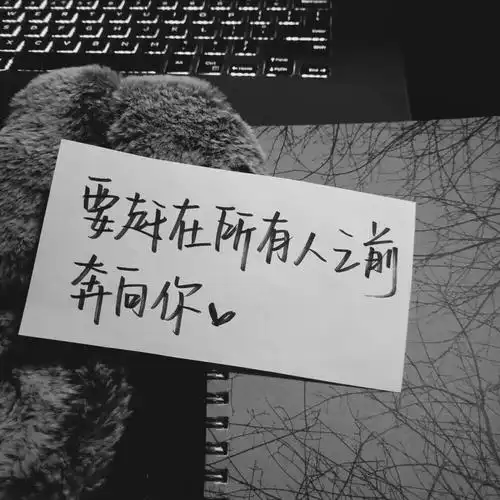 要赶在所有人之前
奔向你